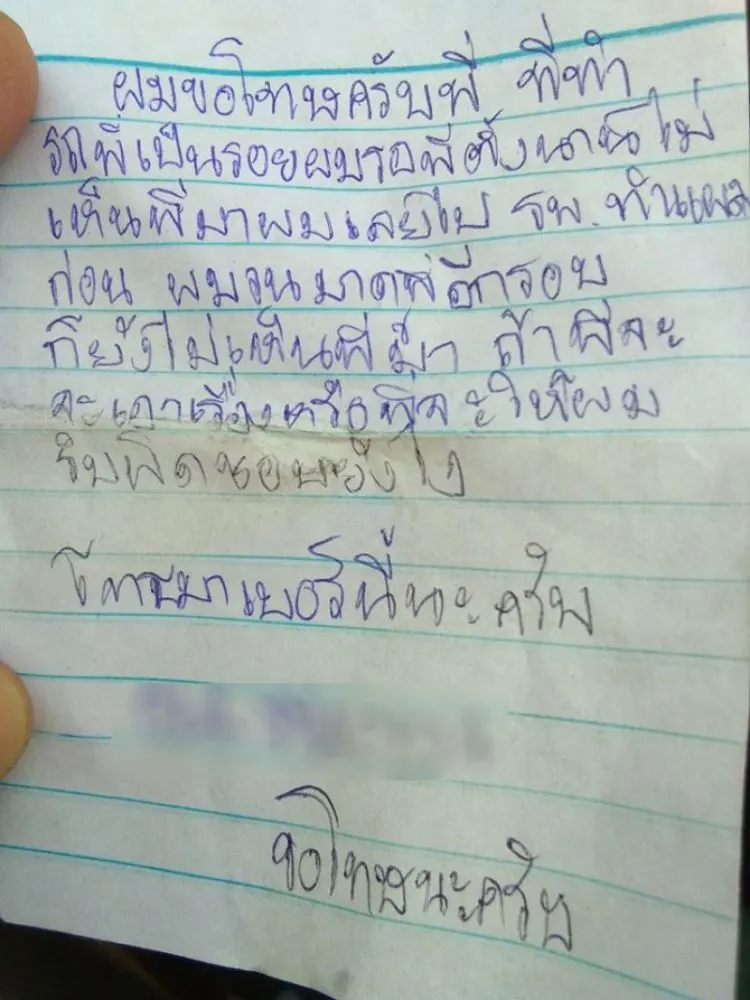 ผมขอโทษครับพี่ ที่ทำ
รถพี่เป็นรอยผมรอพี่ตั้งนานไม่
เห็นพี่มาผมเลยไป รพ. ทำแผล
ก่อน ผมวนมาดูอีกรอบ
ก็ยังไม่เห็นพี่มา ถ้าพี่จะ
จะเอาเรื่องหรือพี่จะให้ผม
รับผิดชอบยังไง
โทรมาเบอร์นี้นะครับ
ขอโทษนะครับ